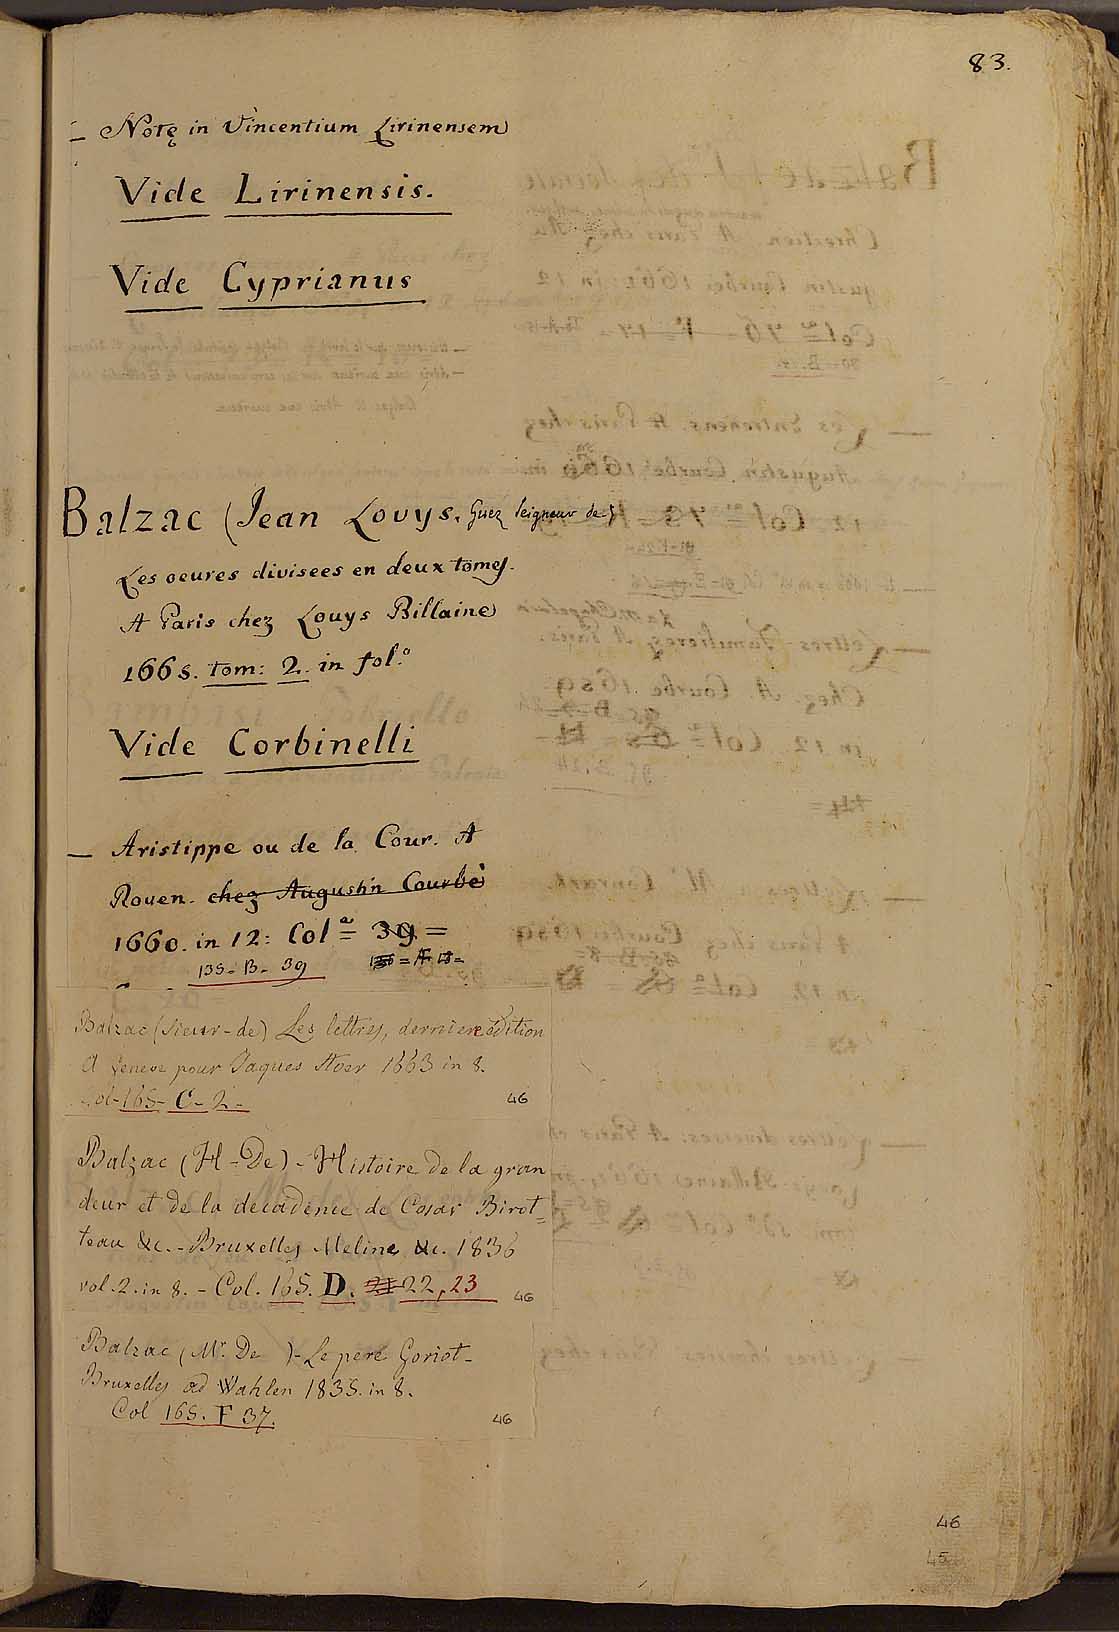 83.
— Notę in Vincentium Lirinensem
Vide Lirinensis.
Vide Cyprianus
Balzac (Jean Louys. Guez seigneur de)
Les oeures divisees en deux tomes.
A Paris chez Louys Billaine
1665. tom: 2. in fol.º
Vide Corbinelli
— Aristippe ou de la Cour. A
Rouen. chez Augustin Courbè
1660. in 12: Colª 39 =
135 - B - 39
Balzac (Sieur-de) Les lettres, derniere edition
A Geneve pour Jaques Stoer 1663 in 8.
Col-165- C-2-
46
Balzac (H-De) - Histoire de la gran
deur et de la decadence de Cesar Birot=
teau &c. - Bruxelles Meline &c. 1836
vol. 2. in 8. - Col. 165. D. 22, 23
46
Balzac (Mr. De ) - Le pere Goriot -
Bruxelles ad Wahlen 1835. in 8.
Col 165. F 37.
46
46
45